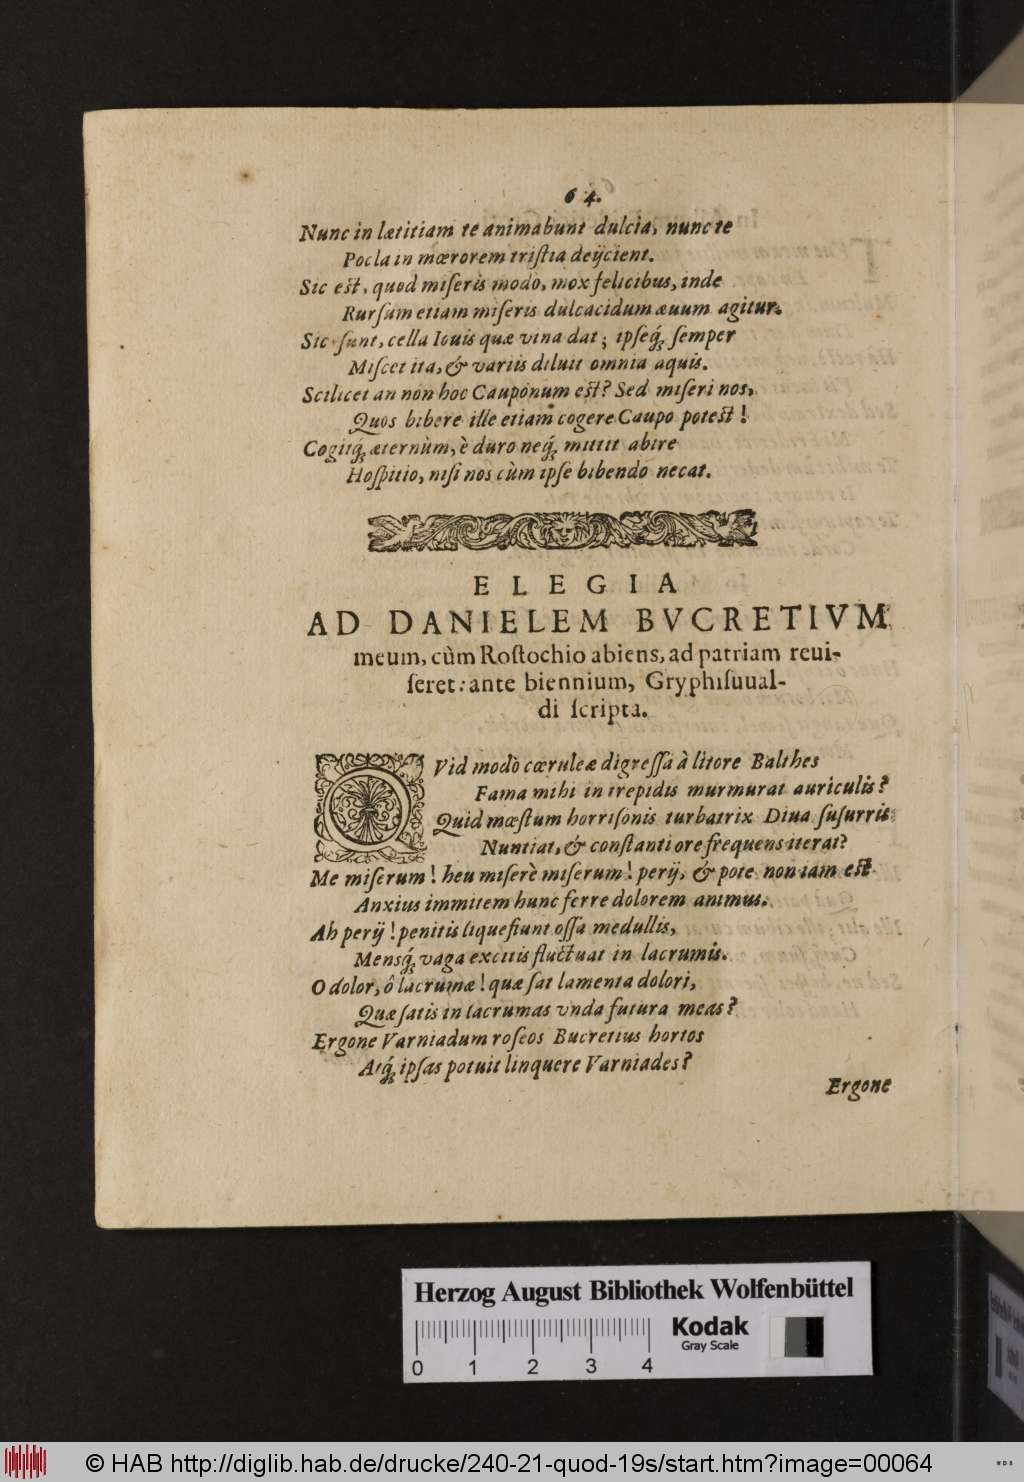 64.
Nunc in lætitiam te animabunt dulcia, nunc te
Pocla in mœrorem tristia deijcient.
Sic est, quod miseris modo, mox felicibus, inde
Rursum etiam miseris dulcacidum æuum agitur.
Sic sunt, cella Iouis quæ vina dat; ipseq́; semper
Miscet ita, & variis diluit omnia aquis.
Scilicet an non hoc Cauponum est? Sed miseri nos,
Quos bibere ille etiam cogere Caupo potest!
Cogitq́; æternùm, è duro neq́; mittit abire
Hospitio, nisi nos cùm ipse bibendo necat.
ELEGIA
AD DANIELEM BVCRETIVM
meum, cùm Rostochio abiens, ad patriam reui-
seret: ante biennium, Gryphisuual-
di scripta.
QVid modò cœruleæ digressa à litore Balthes
Fama mihi in trepidis murmurat auriculis?
Quid mœstum horrisonis turbatrix Diua susurris
Nuntiat, & constanti ore frequens iterat?
Me miserum! heu miserè miserum! perij, & pote non iam est
Anxius immitem hunc ferre dolorem animus.
Ah perij! penitis liquefiunt ossa medullis,
Mensq́; vaga excitis fluctuat in lacrumis.
O dolor, ô lacrumæ! quæ sat lamenta dolori,
Quæ satis in lacrumas vnda futura meas?
Ergone Varniadum roseos Bucretius hortos
Atq́; ipsas potuit linquere Varniades?
Ergone
Herzog August Bibliothek Wolfenbüttel
Kodak
Gray Scale
0 1 2 3 4
© HAB http://diglib.hab.de/drucke/240-21-quod-19s/start.htm?image=00064